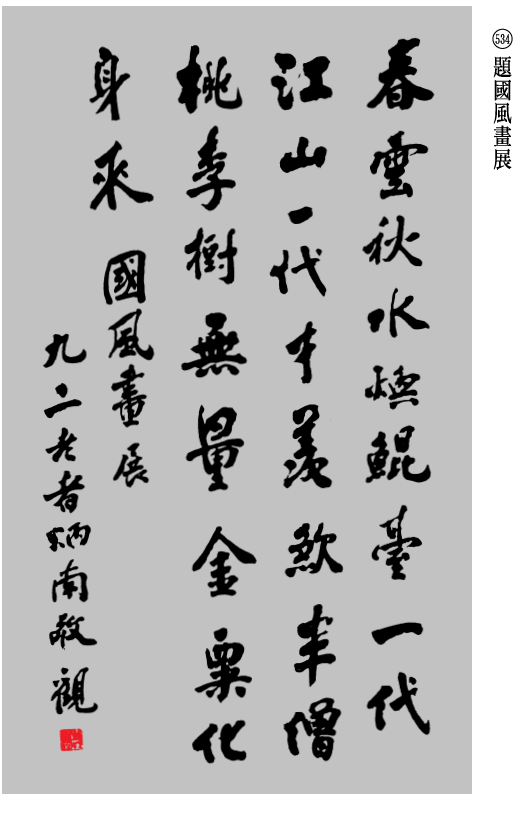 534 題國風畫展
春雲秋水煥鯤臺一代
江山一代才羨煞半僧
桃李樹無量金粟化
身來 國風畫展
九二老者炳南敬觀